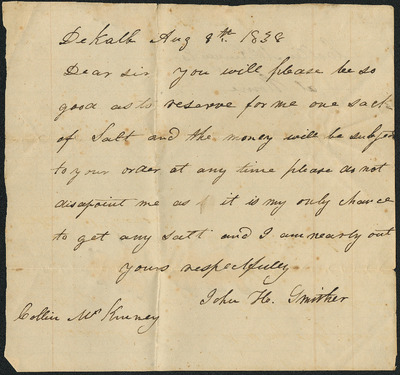 DeKalb Aug 8th. 1838
Dear sir you will please be so
good as to reserve for me one sack
of Salt and the money will be subject
to your order at any time please do not
disapoint me as it is my only chance
to get any salt and I am nearly out
yours respectfuley
John H. Smither
Collin McKinney